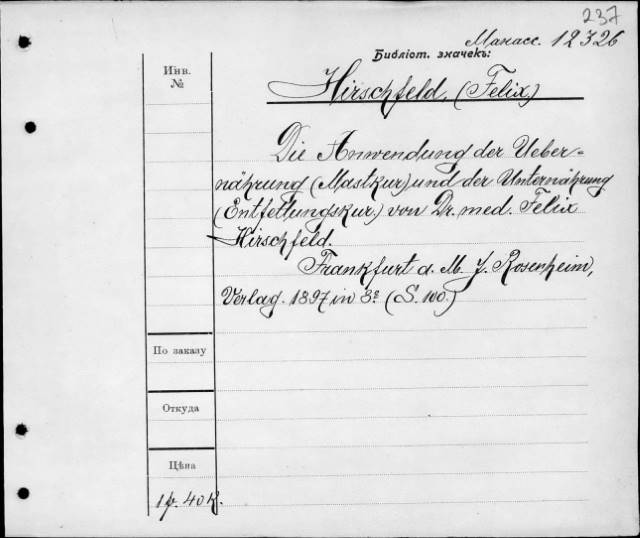 237
Манасс. 12326
Библіот. значекъ:
Инв.
№
Hirschfeld, (Felix.)
Die Anwendung der Ueber-
nährung (Mastkur) und der Unternährung
(Entfettungskur.) von Dr. med. Felix
Hirschfeld.
Frankfurt a. M. J. Rosenheim,
Verlag. 1897 in 8º (S. 100.)
По заказу
Откуда
Цѣна
1р. 40к.